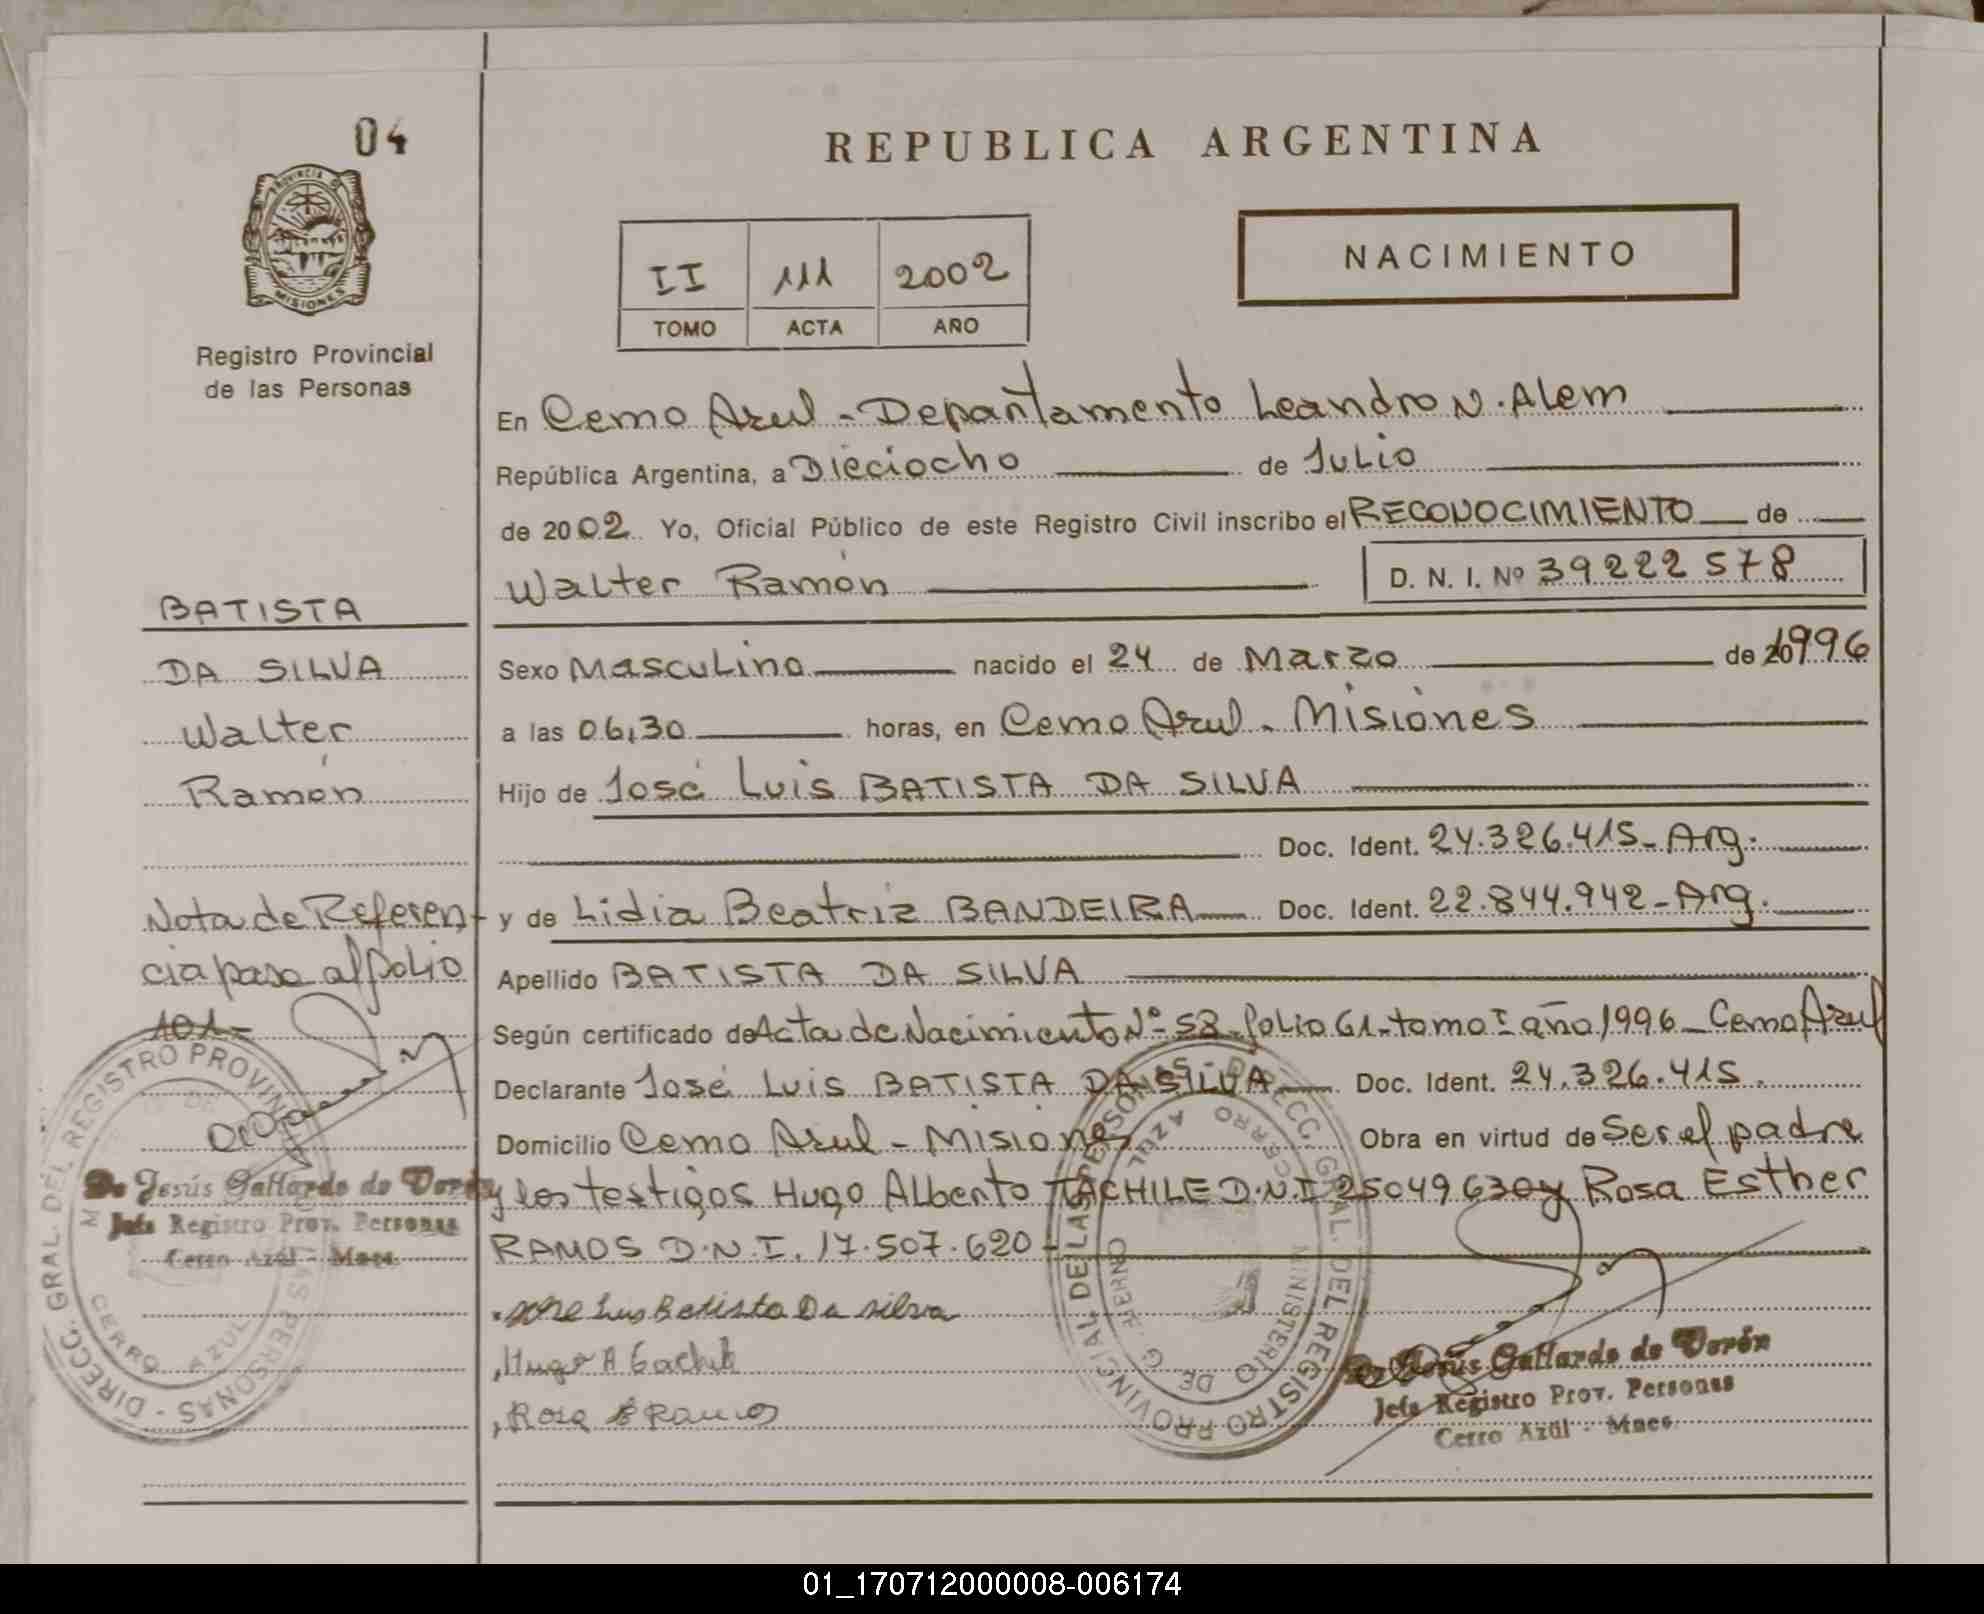 04
PROVINCIA DE
MISIONES
Registro Provincial
de las Personas
REPUBLICA ARGENTINA
II 111 2002
TOMO ACTA AÑO
NACIMIENTO
En Cerro Azul - Departamento Leandro N. Alem
República Argentina, a Dieciocho de Julio
de 2002. Yo, Oficial Público de este Registro Civil inscribo el RECONOCIMIENTO de
Walter Ramón D. N. I. Nº 39222578
BATISTA
DA SILVA
Walter
Ramón
Sexo Masculino nacido el 24 de Marzo de 1996
a las 06,30 horas, en Cerro Azul - Misiones
Hijo de José Luis BATISTA DA SILVA
Doc. Ident. 24.326.415 - Arg.
y de Lidia Beatriz BANDEIRA Doc. Ident. 22.844.942 - Arg.
Apellido BATISTA DA SILVA
Según certificado de Acta de Nacimiento Nº 58 - folio 61 - tomo I año 1996 - Cerro Azul
Declarante José Luis BATISTA DA SILVA Doc. Ident. 24.326.415.
Domicilio Cerro Azul - Misiones Obra en virtud de Ser el padre
y los testigos Hugo Alberto TACHILE D.N.I 25049630 y Rosa Esther
RAMOS D.N.I. 17.507.620 -
Jose Luis Batista Da silva
Hugo A
Rosa E Ramos
Nota de Referen-
cia pasa al folio
101 -
DIRECC. GRAL. DEL REGISTRO PROVINCIAL DE LAS PERSONAS
CERRO AZUL
de Jesús Gallardo de Verón
Jefa Registro Prov. Personas
Cerro Azul - Mnes.
DIRECC. GRAL. DEL REGISTRO PROVINCIAL DE LAS PERSONAS
MINISTERIO DE GOBIERNO
CERRO AZUL
de Jesús Gallardo de Verón
Jefa Registro Prov. Personas
Cerro Azul - Mnes.
01_170712000008-006174